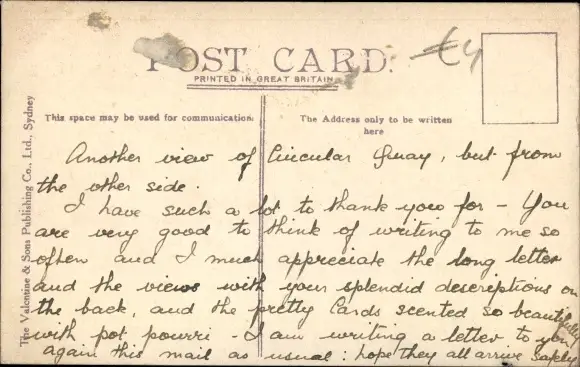 POST CARD.
PRINTED IN GREAT BRITAIN
£4
The Valentine & Sons Publishing Co., Ltd., Sydney
This space may be used for communication.
The Address only to be written
here
Another view of Circular Quay, but from
the other side.
I have such a lot to thank you for - You
are very good to think of writing to me so
often and I much appreciate the long letter
and the views with your splendid descriptions on
the back, and the pretty Cards scented so beautifully
with pot pourri - I am writing a letter to you
again this mail as usual: hope they all arrive safely